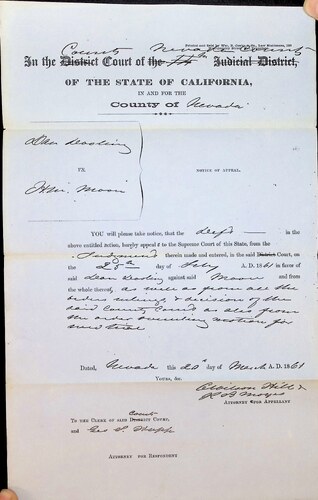 County Nevada County
In the District Court of the 14th Judicial District,
OF THE STATE OF CALIFORNIA,
IN AND FOR THE
County of Nevada
VS.
Moon
NOTICE OF APPEAL.
YOU will please take notice, that the deft's in the
above entitled Action, hereby appeal to the Supreme Court of this State, from the
Judgment therein made and entered, in the said District Court, on
the day of A. D. 1861 in favor of
said against said Moon and from
the whole thereof, as well as from all the
orders rulings & decision of the
said County Court as also from
the order overruling motion for
new trial
Dated, Nevada this day of March A. D. 1861
Yours, &c.
Hill &
ATTORNEY FOR APPELLANT
County
TO THE CLERK OF SAID DISTRICT COURT,
and Geo S.
ATTORNEY FOR RESPONDENT